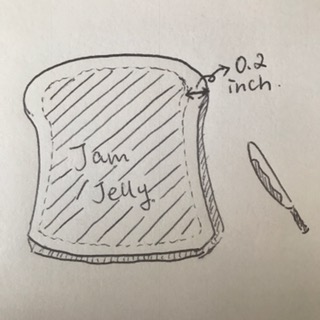 0.2
inch.
Jam
Jelly